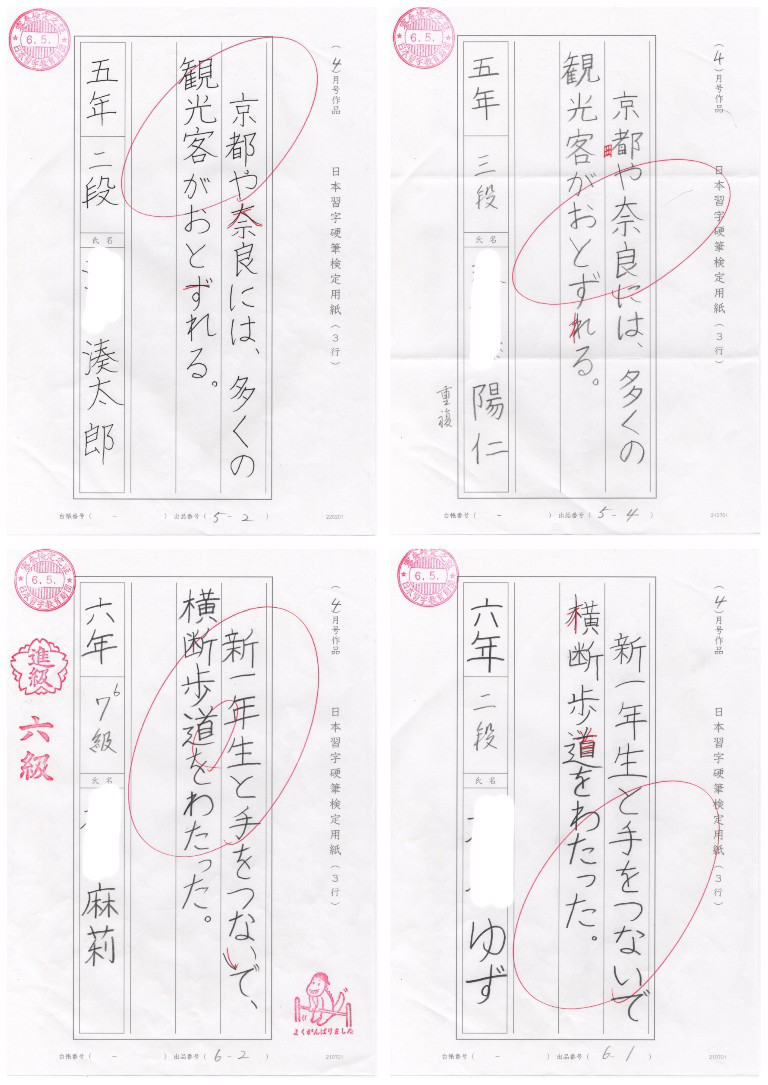 (4)月号作品
日本習字硬筆検定用紙(3行)
京都や奈良には、多くの
観光客がおとずれる。
五年
二段
氏名
湊太郎
台帳番号( - )
出品番号(5-2)
220201
6.5.
日本習字教育財団
(4)月号作品
日本習字硬筆検定用紙(3行)
京都や奈良には、多くの
観光客がおとずれる。
五年
三段
氏名
陽仁
重複
台帳番号( - )
出品番号(5-4)
212701
6.5.
日本習字教育財団
(4)月号作品
日本習字硬筆検定用紙(3行)
新一年生と手をつないで、
横断歩道をわたった。
六年
7級
6
氏名
麻莉
進級
六級
よくがんばりました
台帳番号( - )
出品番号(6-2)
6.5.
日本習字教育財団
(4)月号作品
日本習字硬筆検定用紙(3行)
新一年生と手をつないで
横断歩道をわたった。
六年
二段
氏名
ゆず
台帳番号( - )
出品番号(6-1)
6.5.
日本習字教育財団